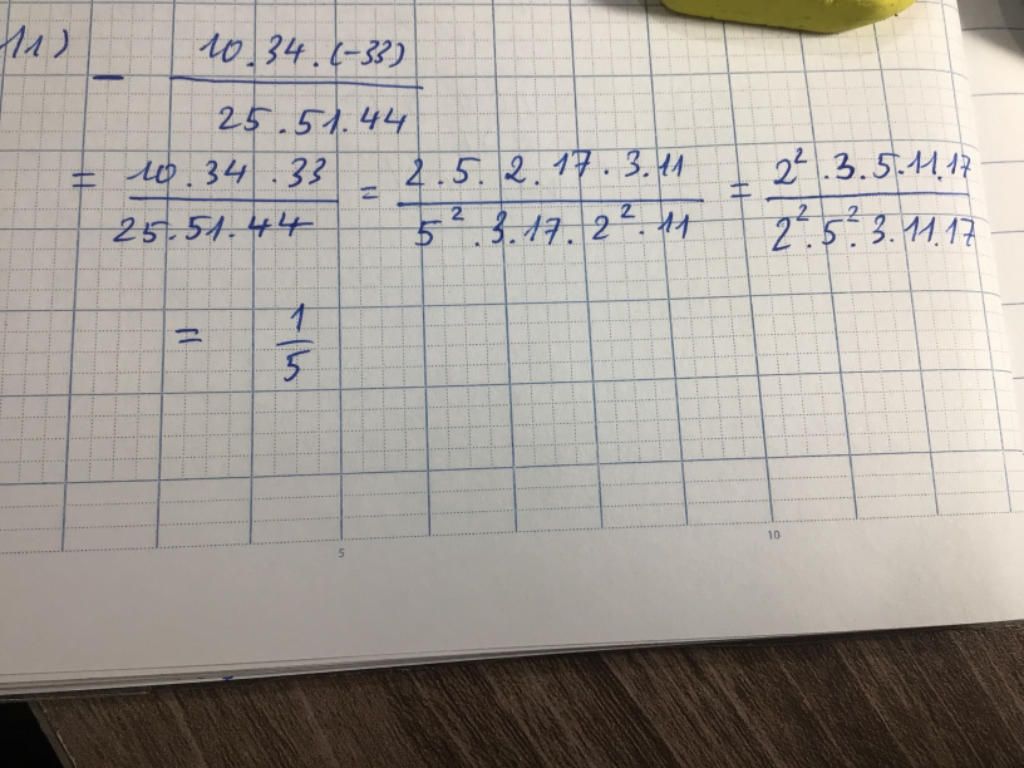 11) - 10.34.(-33) / 25.51.44
= 10.34.33 / 25.51.44 = 2.5.2.17.3.11 / 5².3.17.2².11 = 2².3.5.11.17 / 2².5².3.11.17
= 1/5
5 10